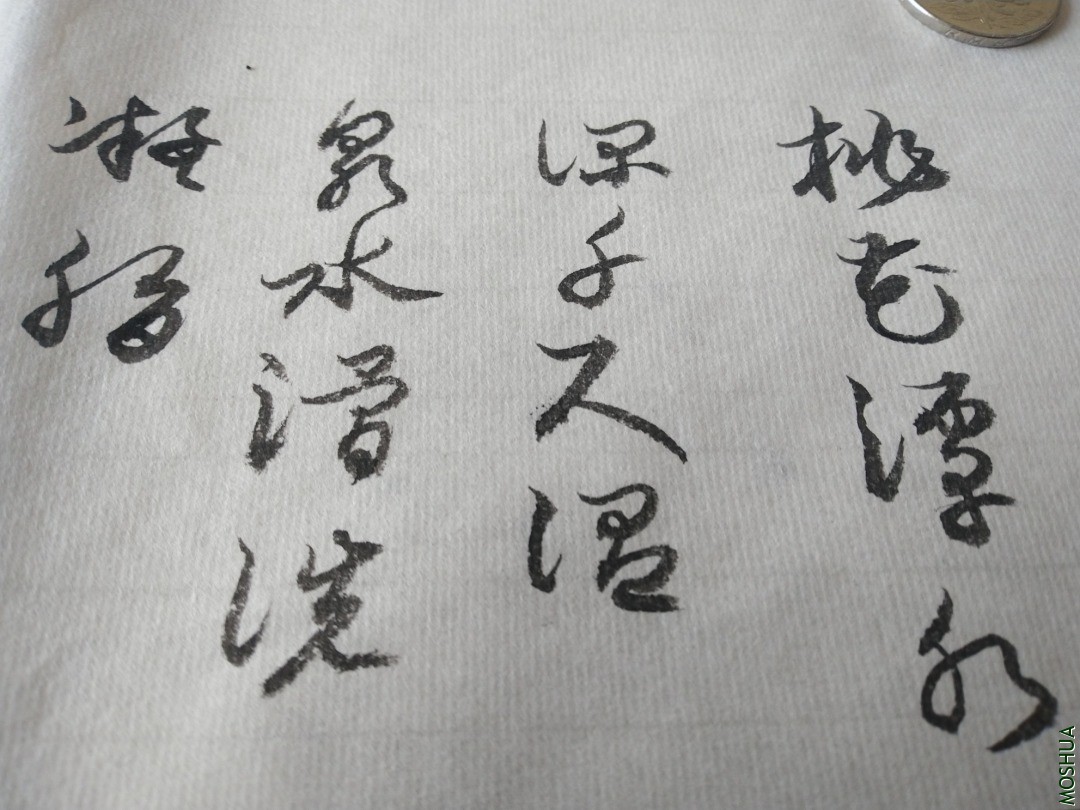 桃花潭水
深千尺温
泉水滑洗
凝脂
MOSHUA